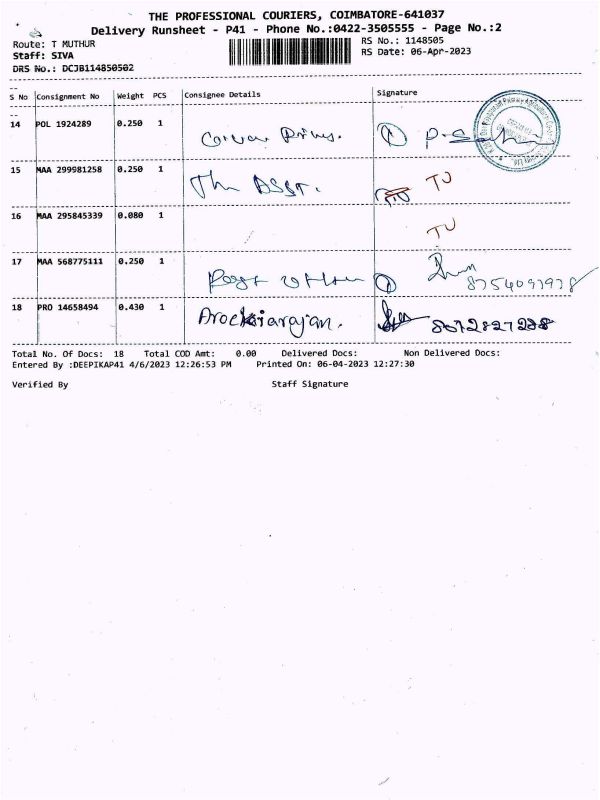 THE PROFESSIONAL COURIERS, COIMBATORE-641037
Delivery Runsheet - P41 - Phone No.:0422-3505555 - Page No.:2
Route: T MUTHUR RS No.: 1148505
Staff: SIVA RS Date: 06-Apr-2023
DRS No.: DCJB114850502
S No Consignment No Weight PCS Consignee Details Signature
14 POL 1924289 0.250 1
15 MAA 299981258 0.250 1 The ASST. TU
16 MAA 295845339 0.080 1 TU
17 MAA 568775111 0.250 1
18 PRO 14658494 0.430 1 Arockiarajan.
Total No. Of Docs: 18 Total COD Amt: 0.00 Delivered Docs: Non Delivered Docs:
Entered By :DEEPIKAP41 4/6/2023 12:26:53 PM Printed On: 06-04-2023 12:27:30
Verified By Staff Signature